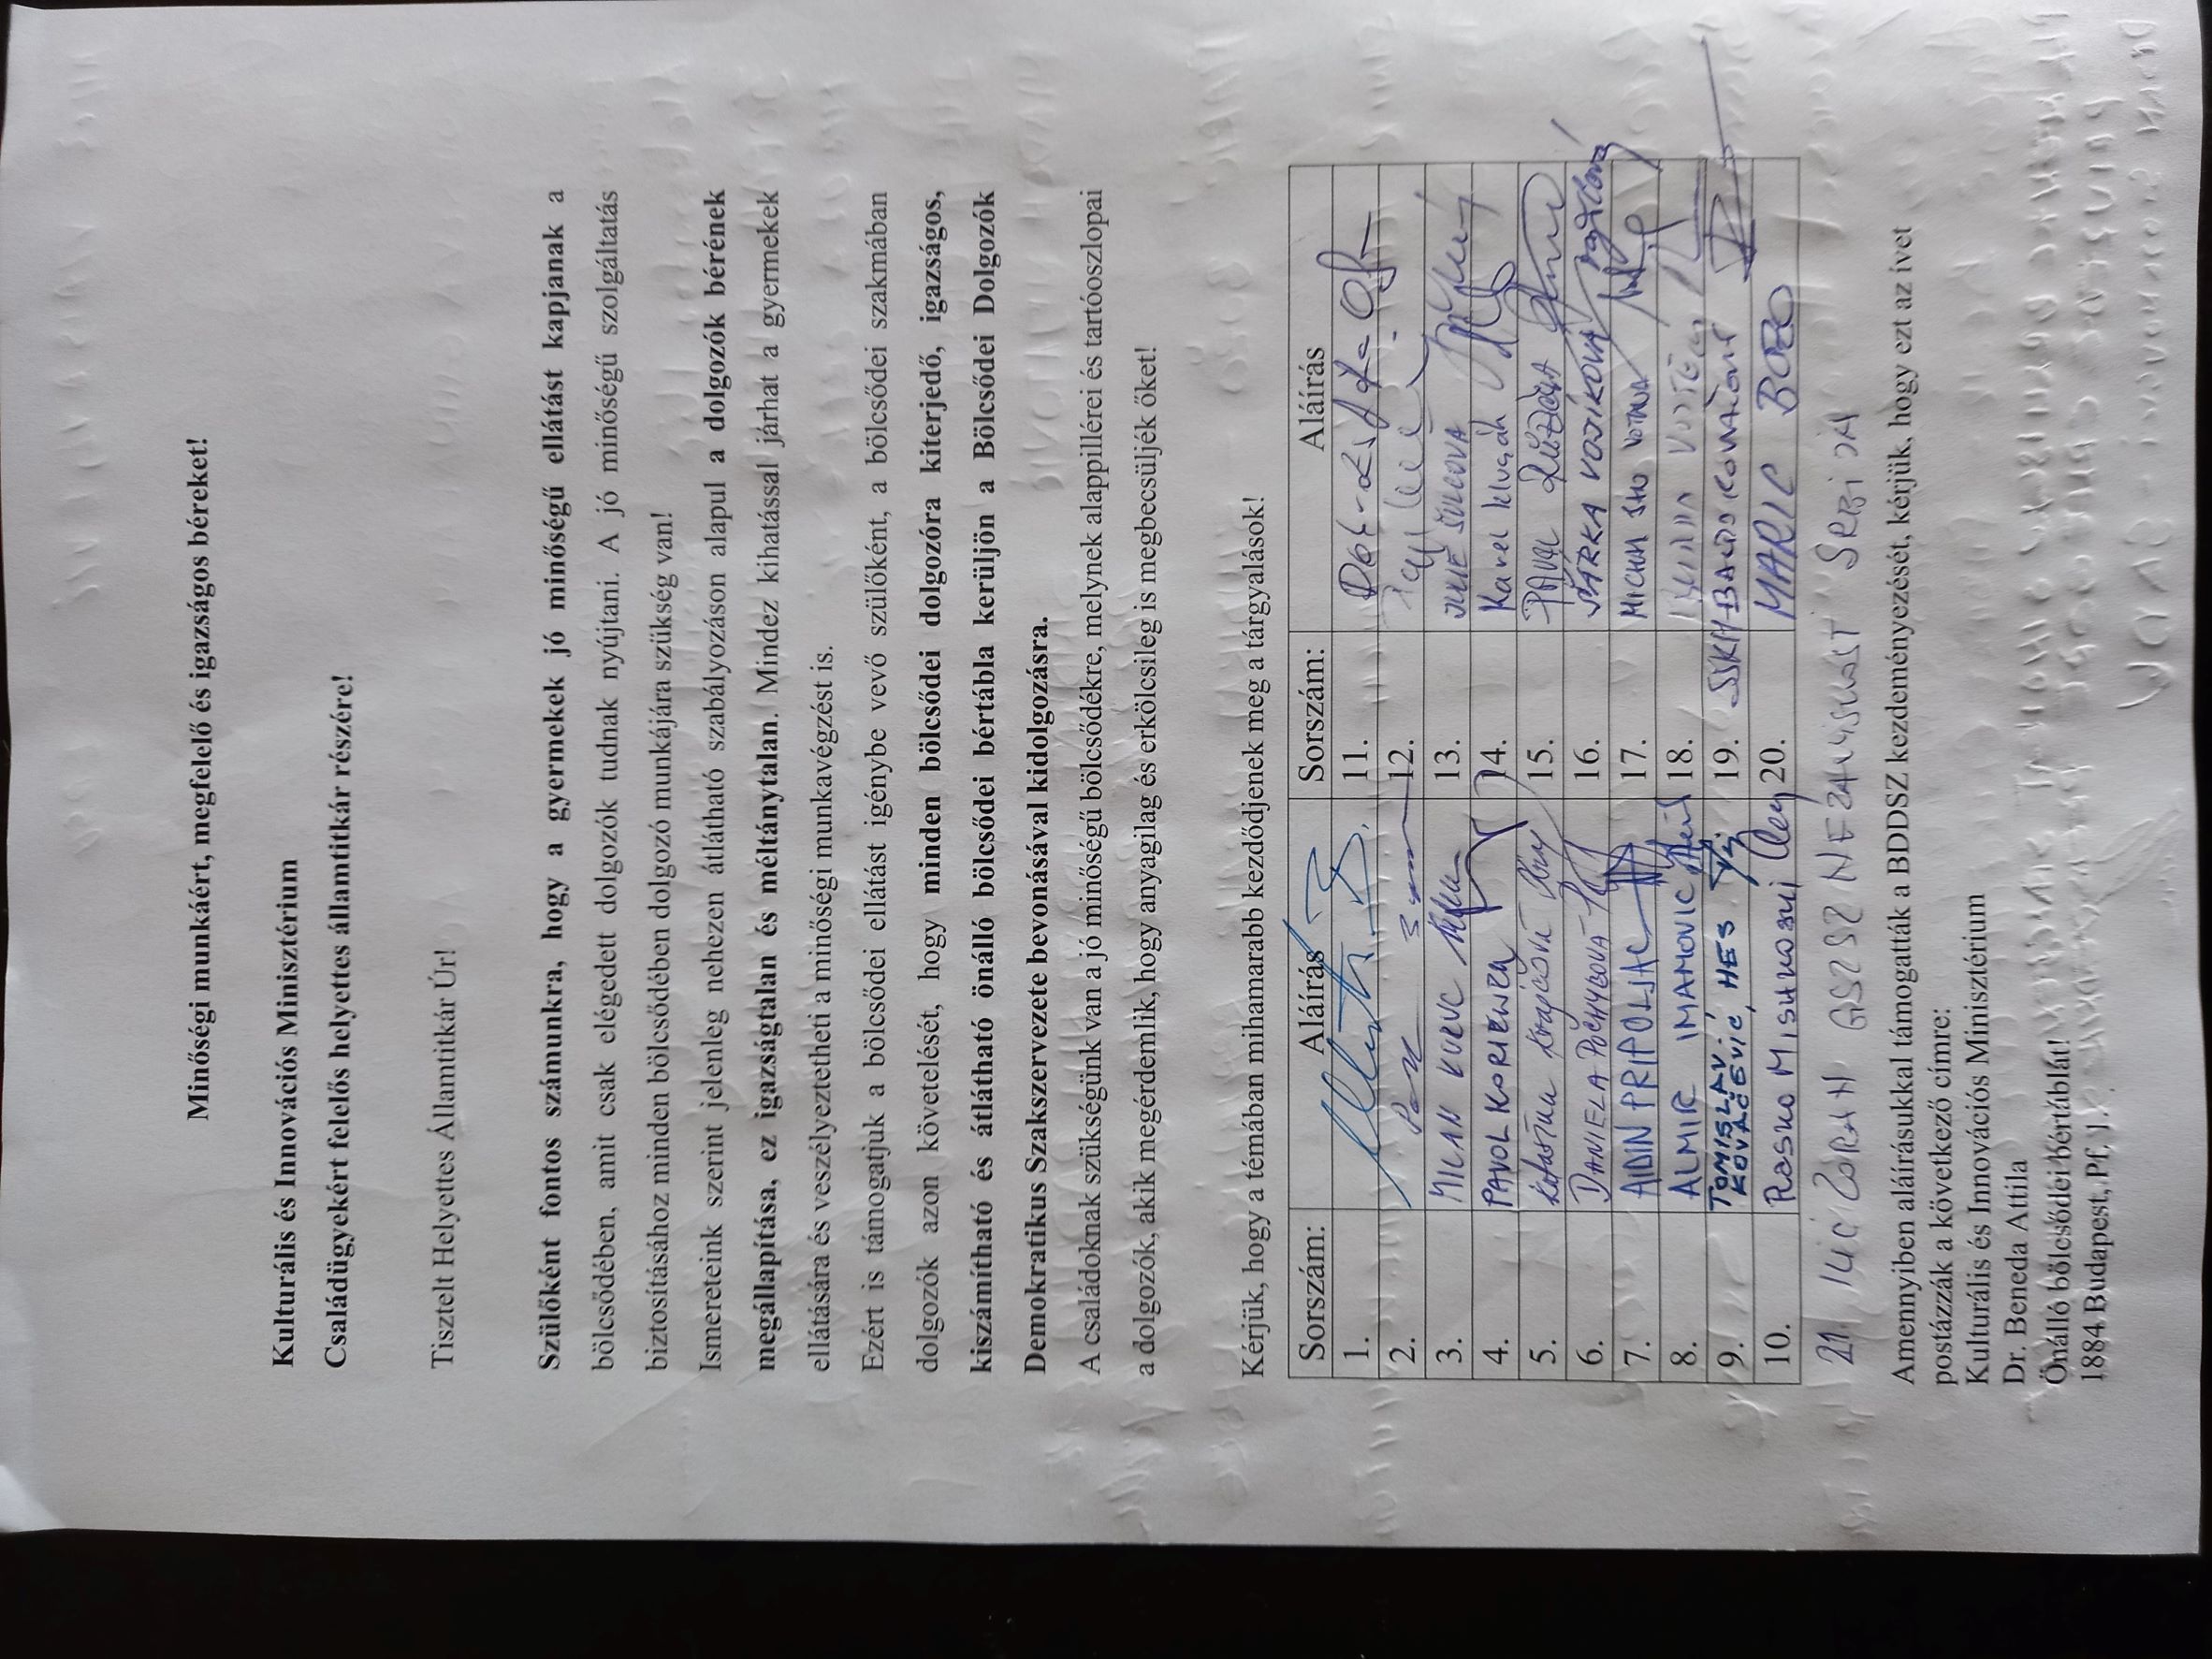 Minőségi munkáért, megfelelő és igazságos béreket!
Kulturális és Innovációs Minisztérium
Családügyekért felelős helyettes államtitkár részére!
Tisztelt Helyettes Államtitkár Úr!
Szülőként fontos számunkra, hogy a gyermekek jó minőségű ellátást kapjanak a
bölcsődében, amit csak elégedett dolgozók tudnak nyújtani. A jó minőségű szolgáltatás
biztosításához minden bölcsődében dolgozó munkájára szükség van!
Ismereteink szerint jelenleg nehezen átlátható szabályozáson alapul a dolgozók bérének
megállapítása, ez igazságtalan és méltánytalan. Mindez kihatással járhat a gyermekek
ellátására és veszélyeztetheti a minőségi munkavégzést is.
Ezért is támogatjuk a bölcsődei ellátást igénybe vevő szülőként, a bölcsődei szakmában
dolgozók azon követelését, hogy minden bölcsődei dolgozóra kiterjedő, igazságos,
kiszámítható és átlátható önálló bölcsődei bértábla kerüljön a Bölcsődei Dolgozók
Demokratikus Szakszervezete bevonásával kidolgozásra.
A családoknak szükségünk van a jó minőségű bölcsődékre, melynek alappillérei és tartóoszlopai
a dolgozók, akik megérdemlik, hogy anyagilag és erkölcsileg is megbecsüljék őket!
Kérjük, hogy a témában mihamarabb kezdődjenek meg a tárgyalások!
Sorszám: Aláírás Sorszám: Aláírás
1. 11.
2. 12.
3. MILAN 13. JULIE
4. PAVOL KORIENEK 14. Karel
5. 15. PAVEL RŮŽIČKA
6. DANIELA 16. ŠÁRKA VOJÍKOVÁ
7. AIDIN PRIPOLJAC 17. MICHAL
8. ALMIR IMAMOVIC 18.
9. TOMISLAV KOVAČEVIĆ, HES 19.
10. 20. MARIC BOZO
21. ILIĆ ZORAN GSZSZ NEZAVISNOST SRBIJA
Amennyiben aláírásukkal támogatták a BDDSZ kezdeményezését, kérjük, hogy ezt az ívet
postázzák a következő címre:
Kulturális és Innovációs Minisztérium
Dr. Beneda Attila
Önálló bölcsődei bértáblát!
1884 Budapest, Pf. 1.